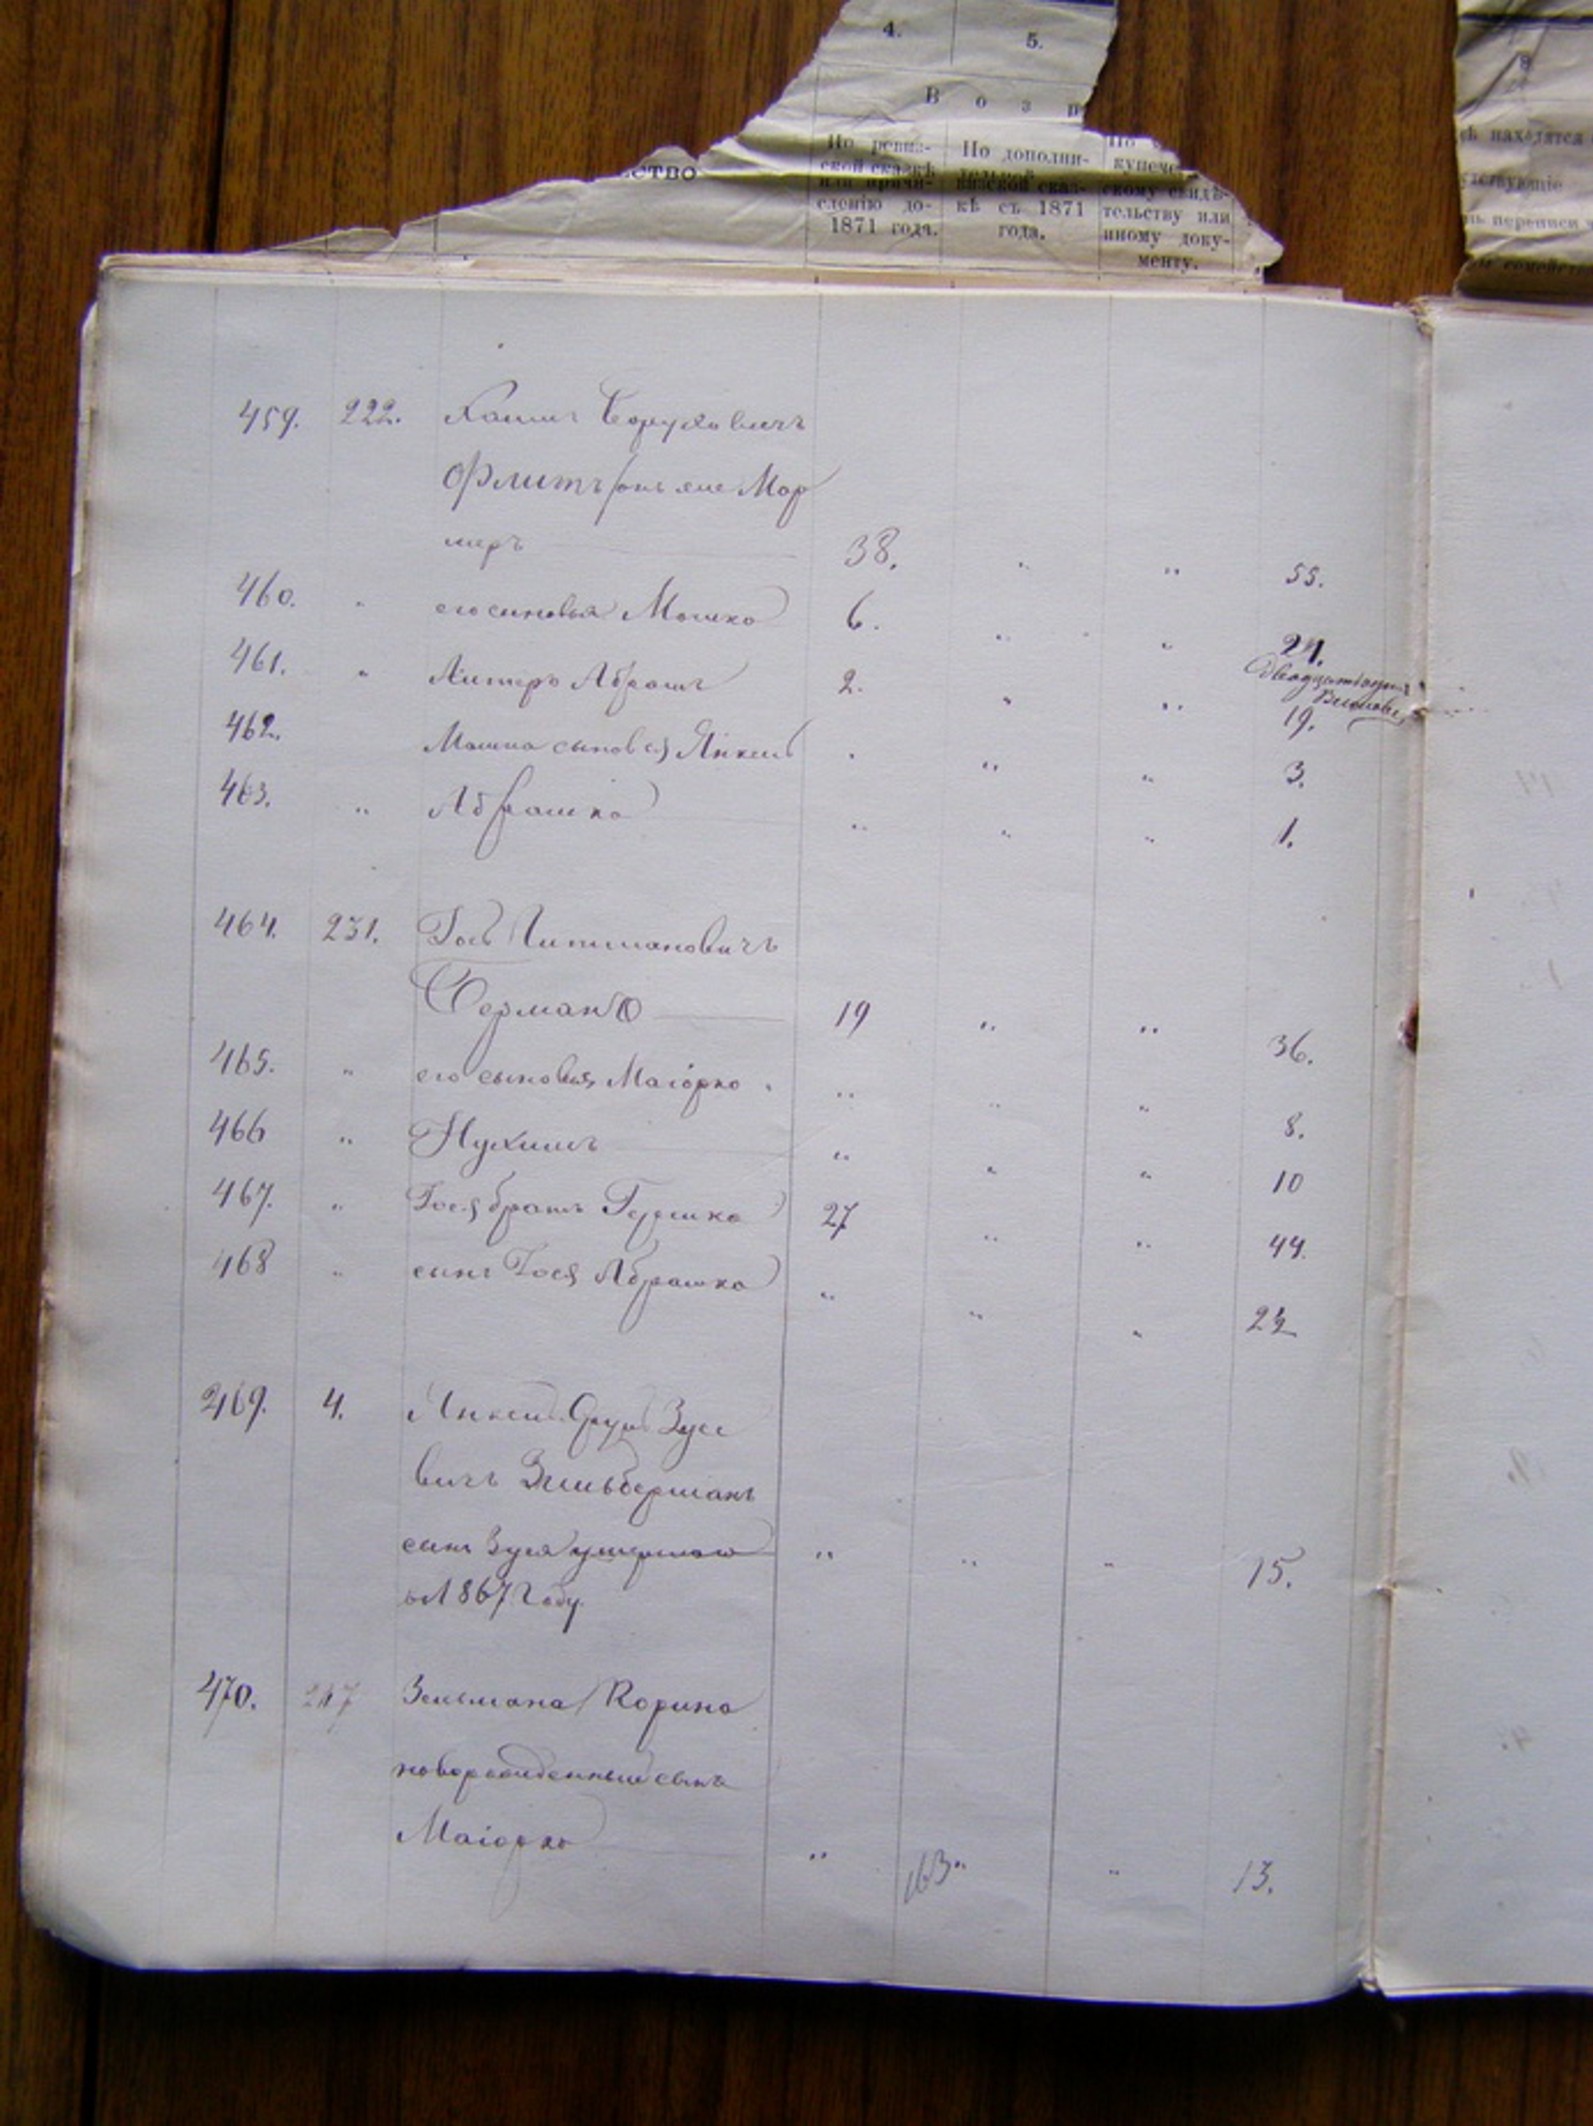 4. 5. 8
В о з р
ство
По ревиз-
ской сказкѣ
или причи-
сленію до-
1871 года.
По дополни-
тельной
визской сказ-
кѣ съ 1871
года.
По
купече
скому свидѣ-
тельству или
иному доку-
менту.
находятся
утствующіе
переписи
459. 222. Хаимъ Боруховичъ
Мор
меръ 38. „ „ 55.
460. „ его сыновья Мошко 6. „ „ 21.
461. „ Абрамъ 2. „ „ 19.
462. Мошка сыновья Янкель „ „ „ 3.
463. „ Абрашка „ „ „ 1.
464. 231. Гось Литмановичъ
19 „ „ 36.
465. „ его сыновья Маіорко „ „ „ 8.
466 „ Нухимъ „ „ „ 10
467. „ Гося братъ Гершко 27 „ „ 44.
468 „ сынъ Гося Абрашка „ „ „ 22
469. 4. Янкель Зусе
вичъ Зильберманъ
сынъ Зуся умершаго „ „ „ 15.
въ 1867 году.
470. 247 Зельмана Корина
новорожденный сынъ
Маіорко „ 163 „ „ 13.